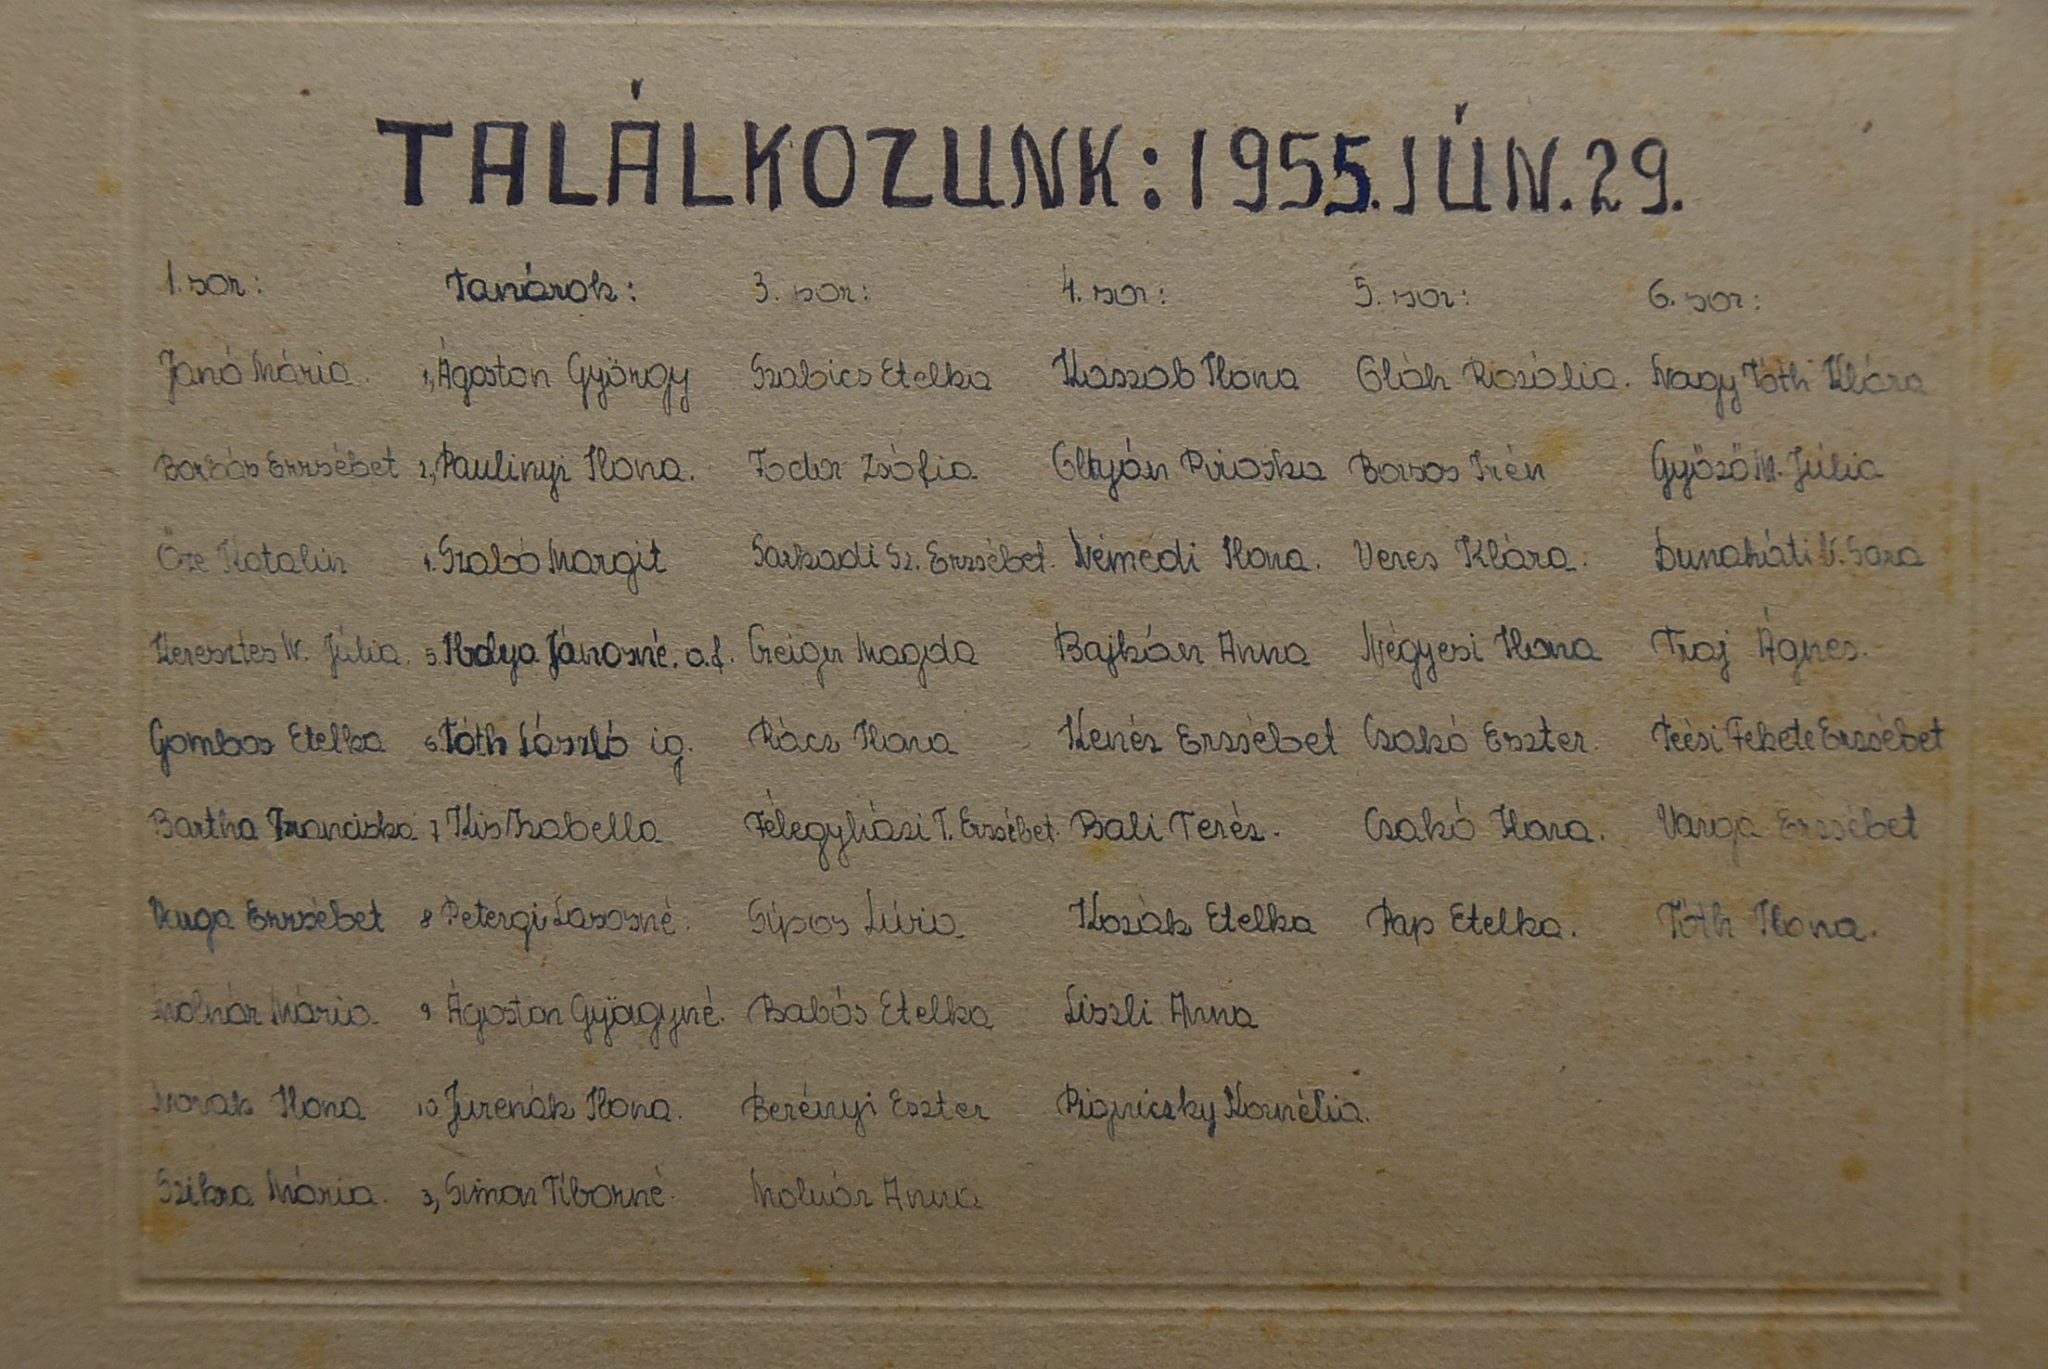 TALÁLKOZUNK: 1955. JÚN. 29.
1. sor: Tanárok: 3. sor: 4. sor: 5. sor: 6. sor:
Janó Mária. 1, Ágoston György Szabics Etelka Kaszab Ilona Oláh Rozália. Nagy Tóth Klára
Barbás Erzsébet 2, Paulinyi Ilona. Fodor Zsófia Oltyán Piroska Borsos Irén Győző M. Júlia
Őze Katalin 4. Szabó Margit Sarkadi Sz. Erzsébet. Némedi Ilona. Veres Klára. Dunaháti V. Sára
Keresztes N. Júlia. 5. Jánosné. o.f. Geiger Magda Bajkán Anna Négyesi Ilona Traj Ágnes.
Gombos Etelka 6. Tóth László ig. Rácz Ilona Kenéz Erzsébet Csakó Eszter. Técsi Fekete Erzsébet
Bartha Franciska 7 Kis Izabella Félegyházi T. Erzsébet. Bali Teréz. Csakó Ilona. Varga Erzsébet
Varga Erzsébet 8 Petergi Sípos Lívia Kozák Etelka Pap Etelka. Tóth Ilona.
Molnár Mária 9 Ágoston Györgyné. Babós Etelka Liszli Anna
Novák Ilona 10 Jurenák Ilona. Berényi Eszter Kornélia.
Szikra Mária. 3, Simon Tiborné. Molnár Anna